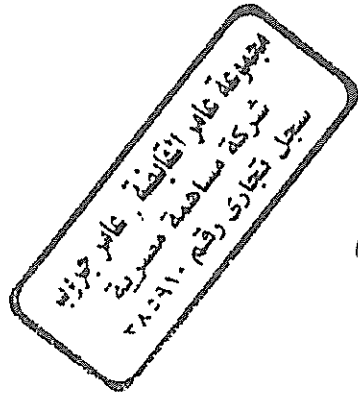 مجموعة عامر القابضة , عامر جروب
شركة مساهمة مصرية
سجل تجارى رقم